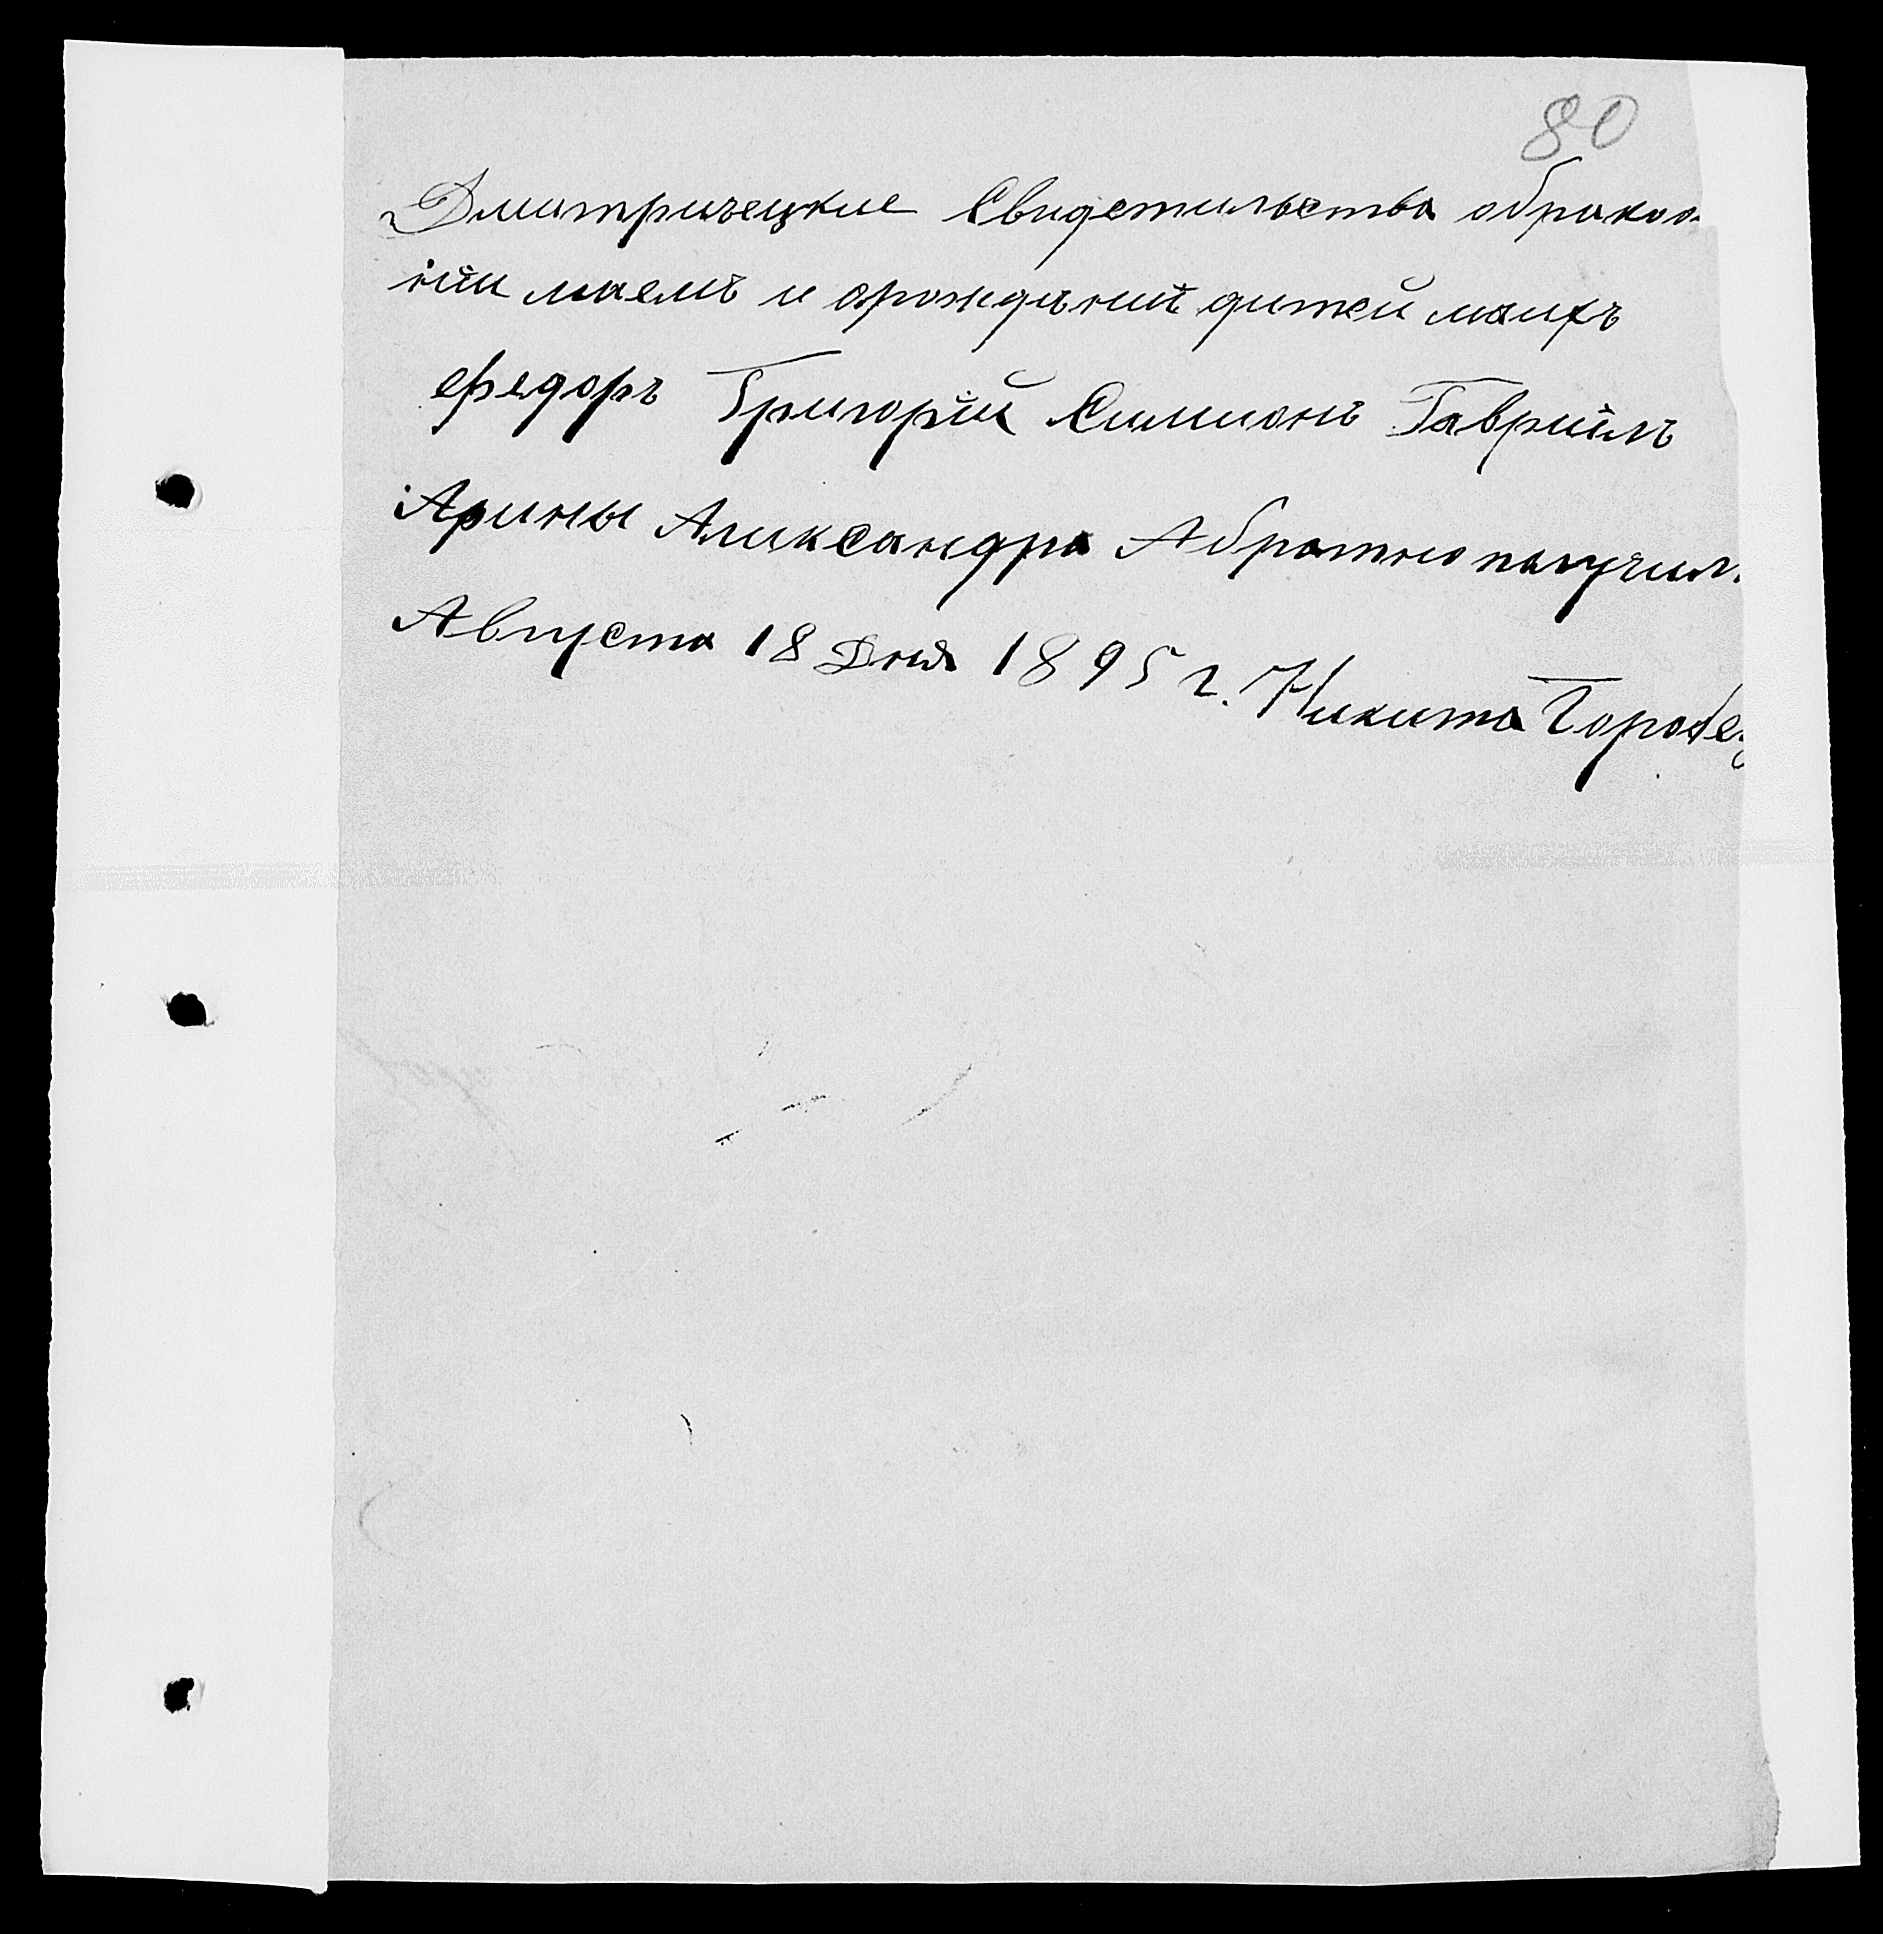 80
Дмитричецкие Свидетильства обракоо
нии маемъ и орождѣнии дитей маихъ
Федоръ Григорий Симионъ Гаврыилъ
Арины Аликсандра Абратно палучил
Августа 18 Дня 1895 г. Никита Горобец